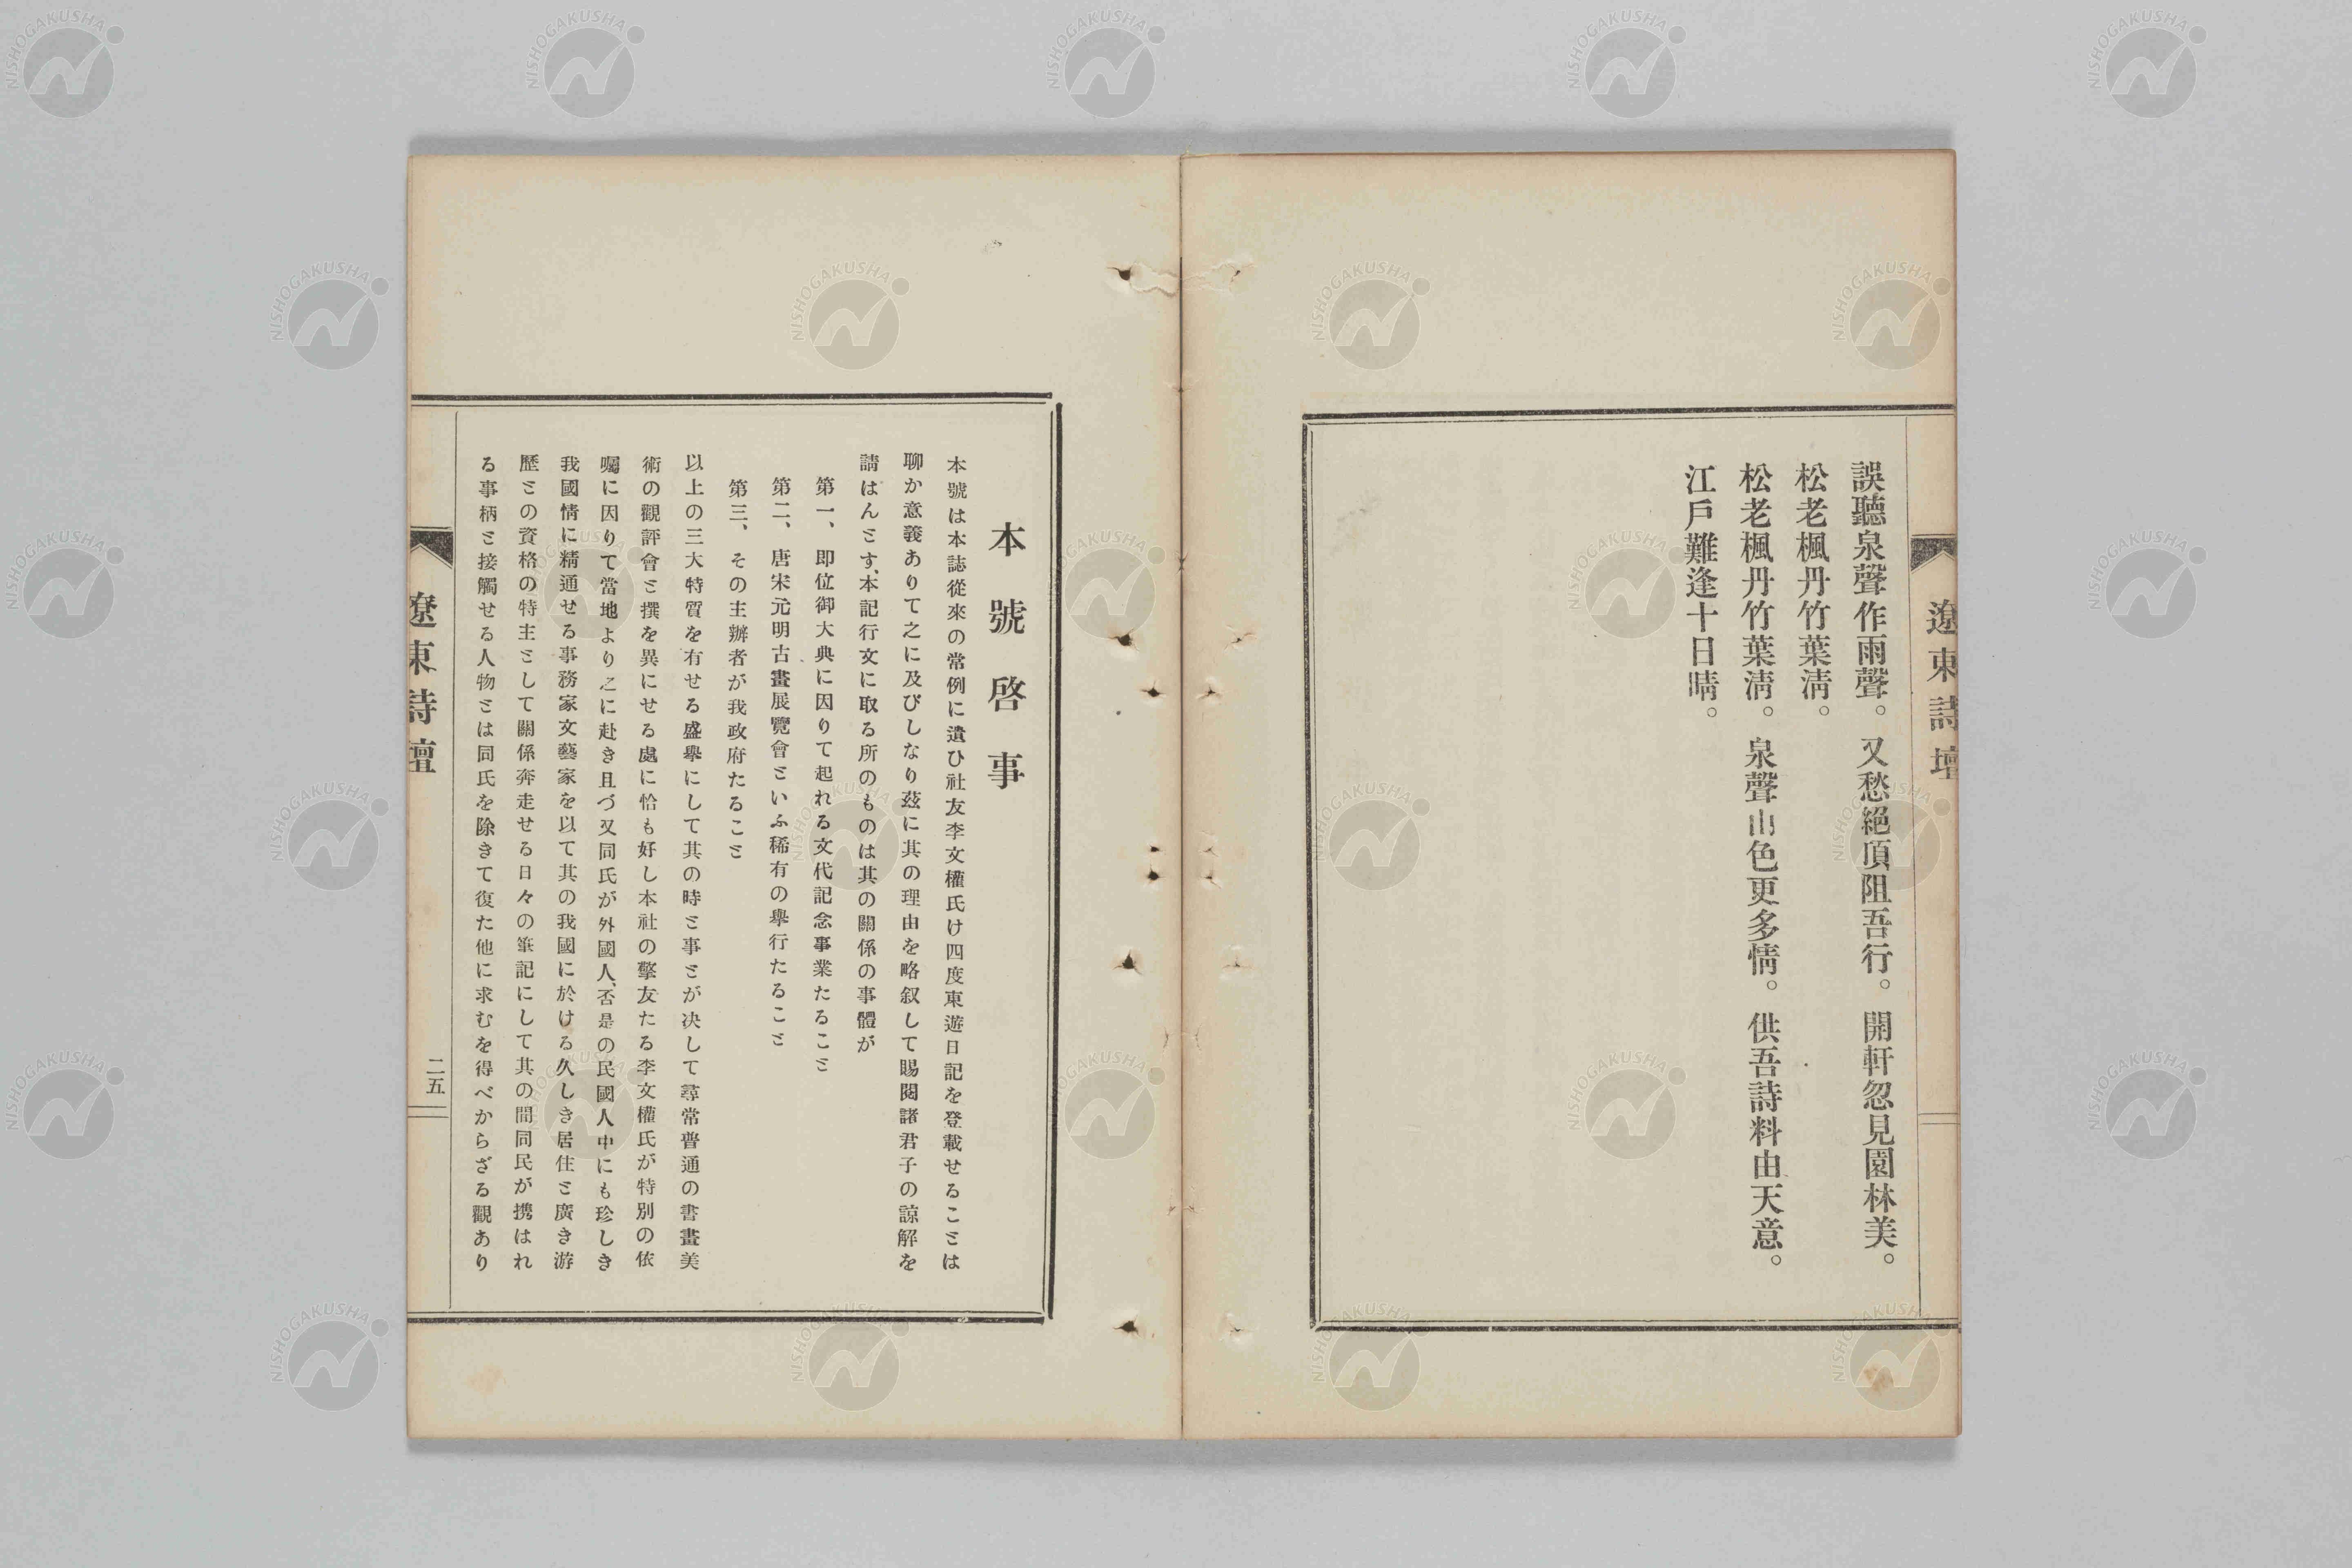 遼東詩壇
誤聽泉聲作雨聲。又愁絕頂阻吾行。開軒忽見園林美。
松老楓丹竹葉淸。
松老楓丹竹葉淸。泉聲山色更多情。供吾詩料由天意。
江戶難逢十日晴。
本號啓事
本號は本誌從來の常例に遣ひ社友李文權氏け四度東遊日記を登載せることは
聊か意義ありて之に及びしなり茲に其の理由を略叙して賜閱諸君子の諒解を
請はんとす、本記行文に取る所のものは其の關係の事體が
第一、卽位御大典に因りて起れる文代記念事業たること
第二、唐宋元明古畫展覽會といふ稀有の擧行たること
第三、その主辦者が我政府たること
以上の三大特質を有せる盛擧にして其の時と事とが决して尋常普通の書畫美
術の觀評會と撰を異にせる處に恰も好し本社の擎友たる李文權氏が特別の依
囑に因りて當地より之に赴き且づ又同氏が外國人、否是の民國人中にも珍しき
我國情に精通せる事務家文藝家を以て其の我國に於ける久しき居住と廣き游
歷との資格の特主として關係奔走せる日々の筆記にして其の間同民が携はれ
る事柄と接觸せる人物とは同氏を除きて復た他に求むを得べからざる觀あり
遼東詩壇
二五
NISHOGAKUSHA